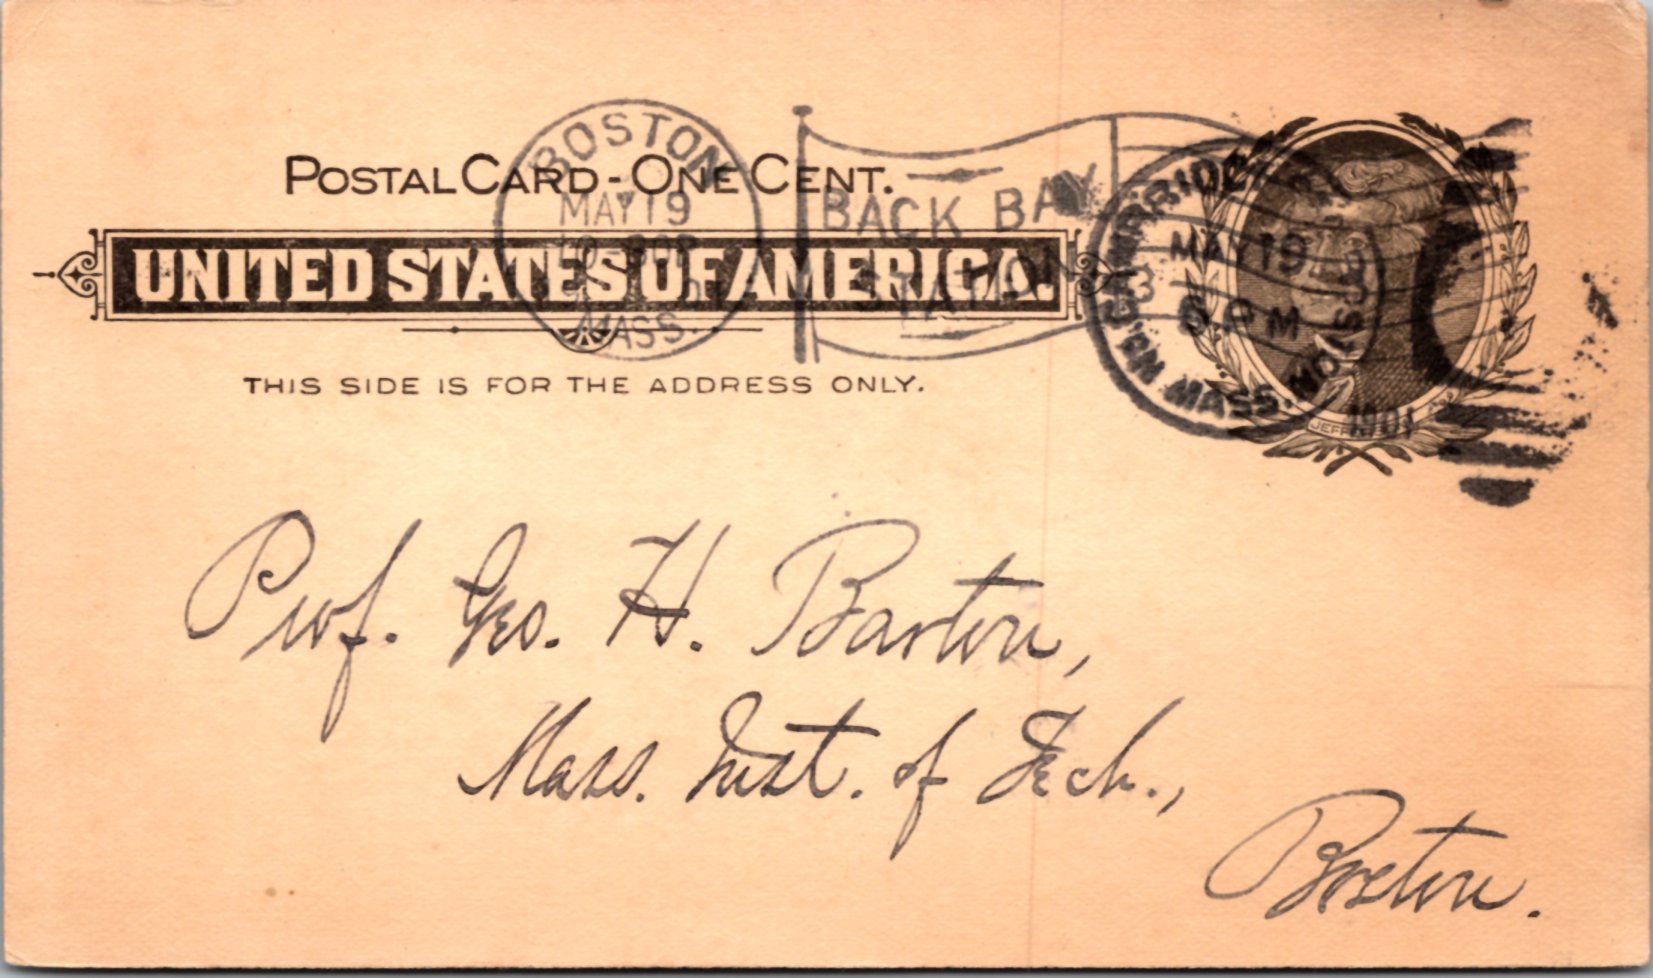 POSTAL CARD - ONE CENT.
UNITED STATES OF AMERICA.
THIS SIDE IS FOR THE ADDRESS ONLY.
BOSTON
MAY 19
MASS.
BACK BAY
CAMBRIDGE
MAY 19
6 PM
BOSTON, MASS.
1901
Prof. Geo. H. Barton,
Mass. Inst. of Tech.,
Boston.